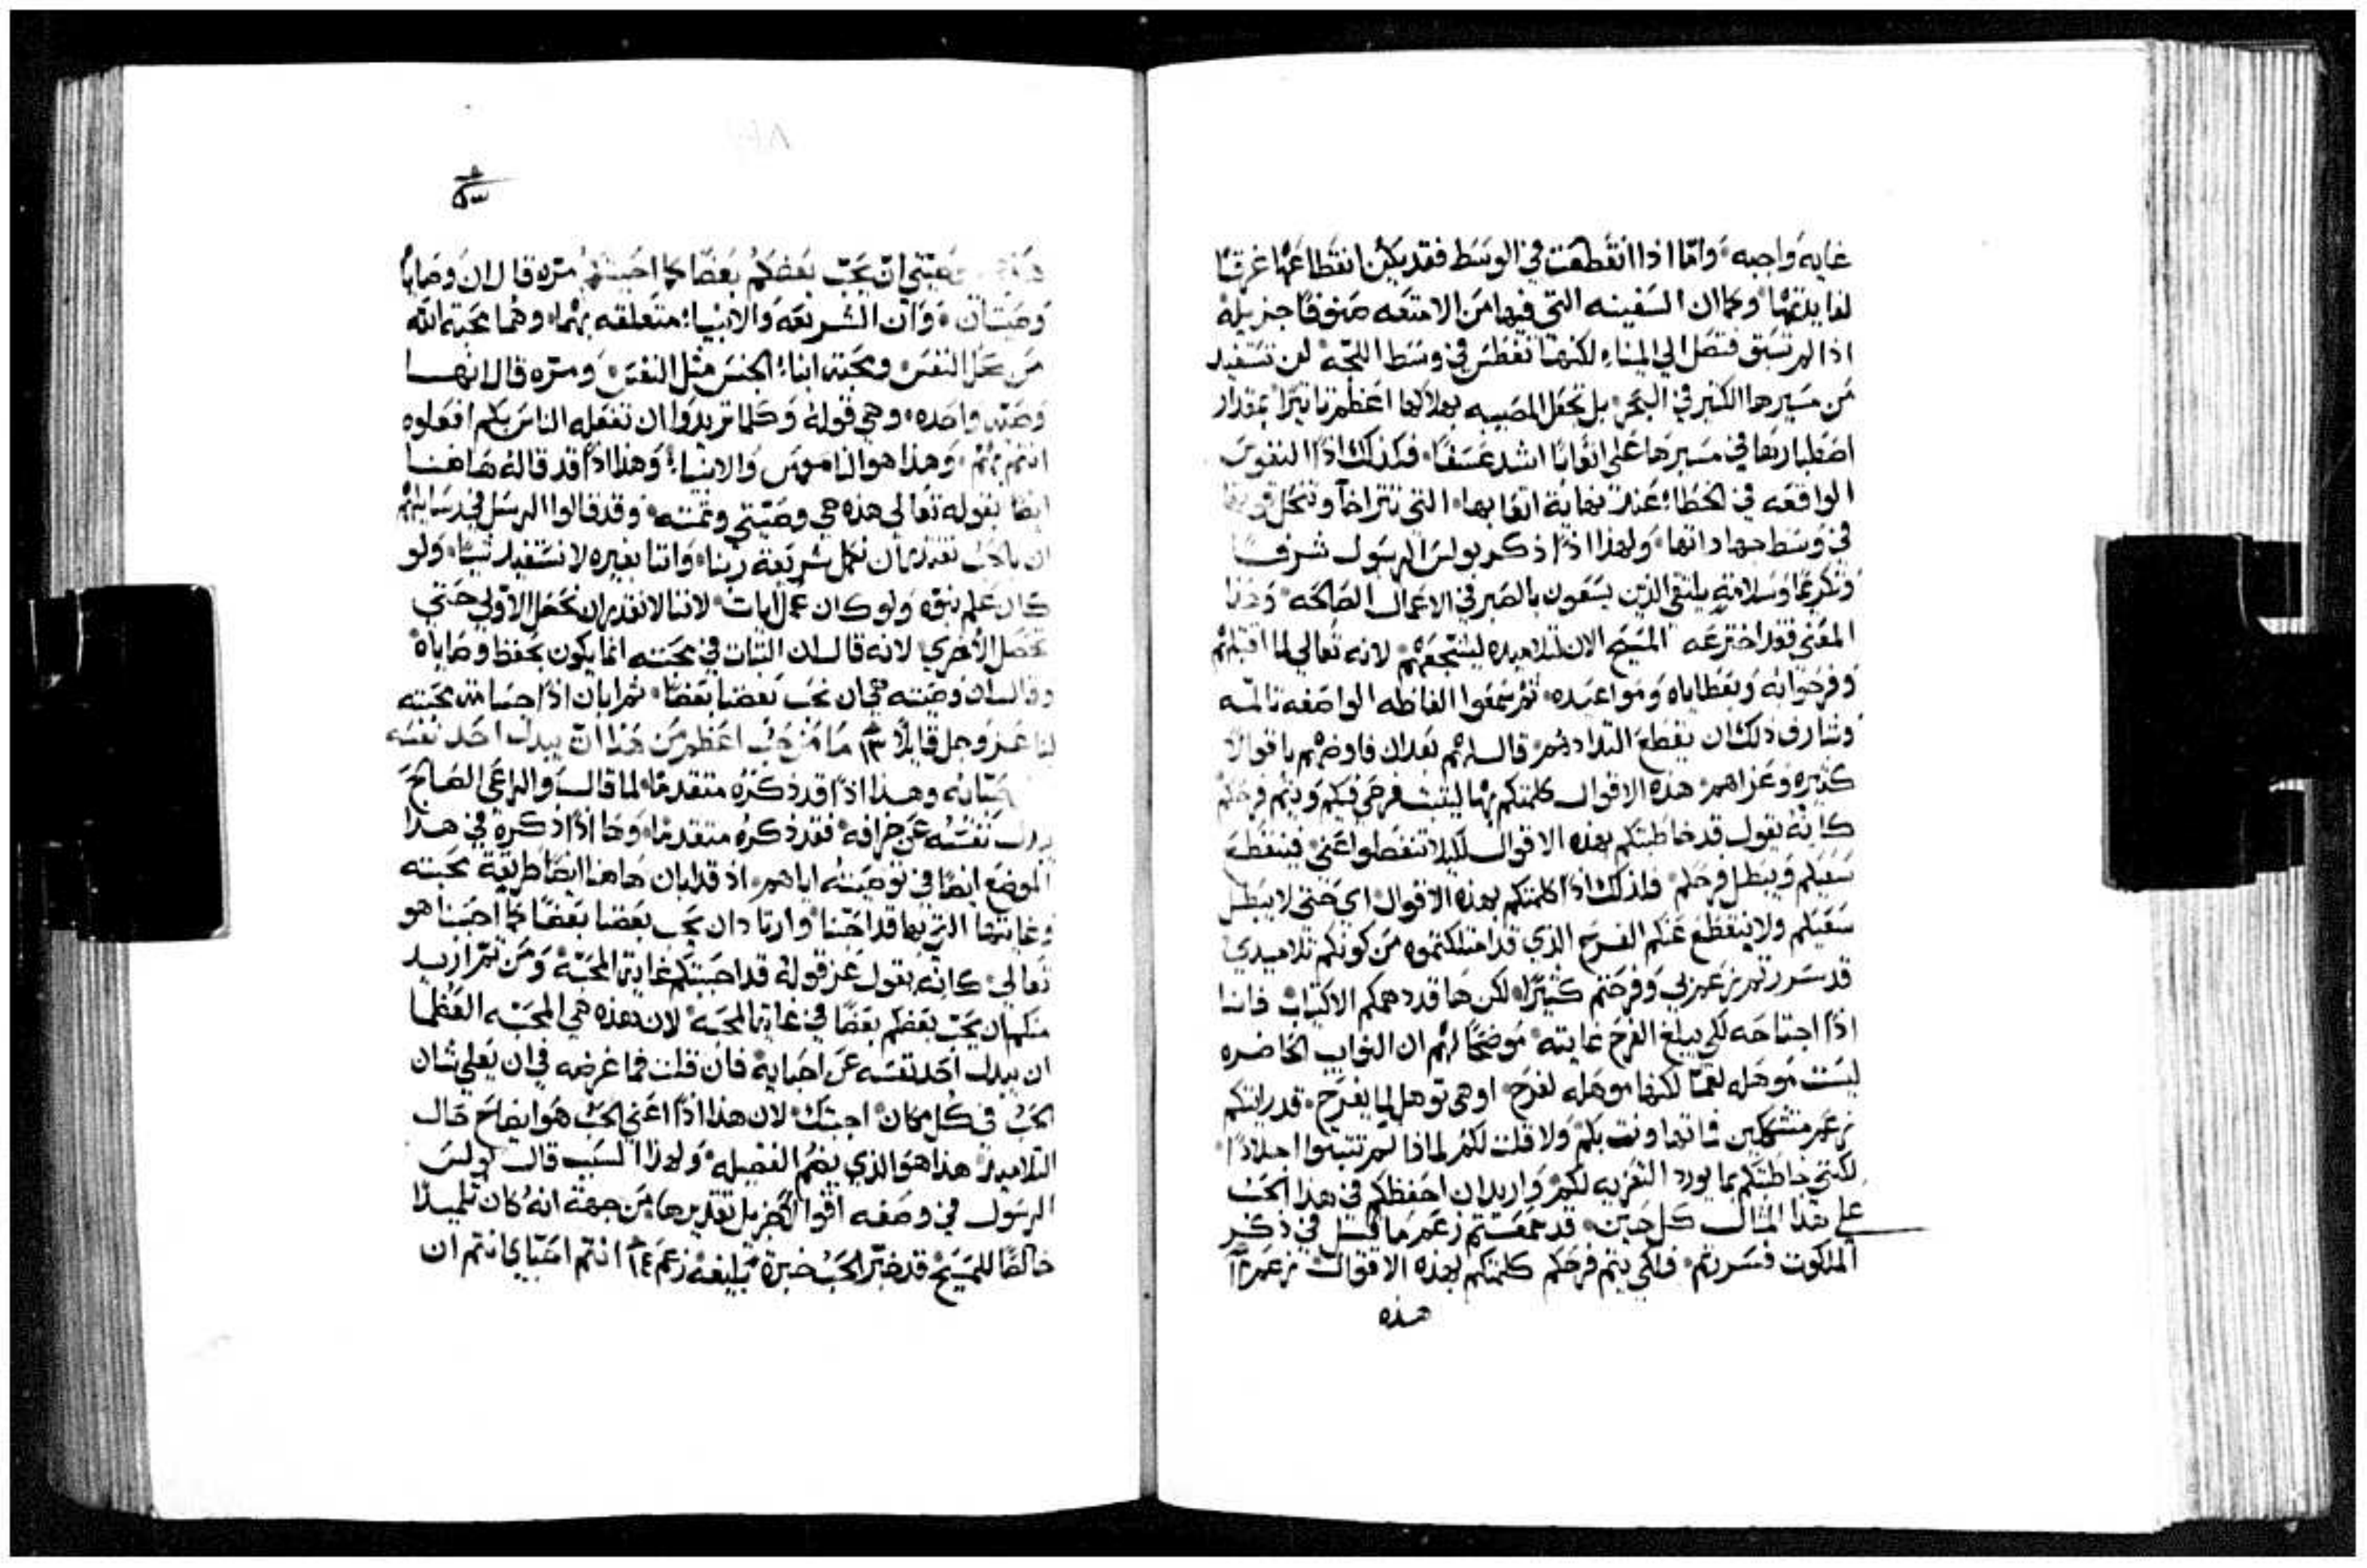 غايه واجبه وامّا اذا انقطعت في الوسط فقد يكون انقطاعها غرقًا
لفايدتها وكما ان السفينه التي فيها من الامتعه صنوفًا جزيله
اذا لم تسبق فتصل الي الميناء لكنها تغطس في وسط اللجّه لن تستفيد
من مسيرها الكثير في البحر بل تجعل المصيبه بهلاكها اعظم تاثيرًا بمقدار
اصطبارها في مسيرها علي اتعابًا اشد عسفًا فكذلك اذًا النفوس
الواقعه في الخطاء عند نهاية اتعابها التي تتراخا وتنحل قوتها
في وسط جهاداتها ولهذا اذًا ذكر بولس الرسول شرفًا
وتكريمًا وسلامةٍ يلتقي الذين يسعون بالصبر في الاعمال الصالحه وهذا
المعني فقد اخترعه المسيح الان لتلاميذه ليشجعهم لانه تعالي لما اقبلهم
وفرحوا به وبعطاياه ومواعيده ثم سمعوا الفاظه الواصفه تالمه
وشارف ذلك ان يقطع التدادهم قال لهم بعد ان فاوضهم باقوالًا
كثيره وعزاهم هذه الاقوال كلمتكم بها ليثبت فرحي فيكم ويتم فرحكم
كانه يقول قد خاطبتكم بهذه الاقوال لكيلا تنفصلوا عني فينقطع
سعيكم ويبطل فرحكم فلذلك اذًا كلمتكم بهذه الاقوال اي حتي لا يبطل
سعيكم ولا ينقطع عنكم الفرح الذي قد امتلكتموه من كونكم تلاميذي
قد سررتم بي وفرحتم كثيرًا لكن ها قد دهمكم الاكتياب فانا
اذًا اجتاحه لكي يبلغ الفرح غايته موضحًا لهم ان النوايب الحاضره
ليست موهله لغمًا لكنها موهله لفرح او هي توهل لما يفرح قد رايتكم
متشككين فما تهاونت بكم ولا قلت لكم لماذا لم تثبتوا اجلادًا
لكنني خاطبتكم بما يورد التعزيه لكم واريد ان احفظكم في هذا الحب
علي هذا المثال كل حين قد سمعتم ما قيل في ذكر
الملكوت فسررتم فلكي يتم فرحكم كلمتكم بهذه الاقوال
هذه
وصيّتي ان يحبّ بعضكم بعضًا كما احببتكم مرّه قال ان وصاياه
وصيتان وان الشريعه والانبياء متعلقه بهما وهما محبة الله
من كل النفس ومحبة ابناء الجنس مثل النفس ومرّه قال انها
وصيّه واحده وهي قوله وكلما تريدوا ان تفعله الناس بكم افعلوه
انتم بهم وهذا هو الناموس والانبياء وهذا اذًا قد قاله هاهنا
ايضًا بقوله تعالي هذه هي وصيّتي وتمته وقد قالوا الرسل في رسايلهم
ان بالحب نقدر ان نكمل شريعة ربنا واننا بغيره لا نستفيد شيًا ولو
كان علم نبوه ولو كان عمل ايات لاننا لا نقدر ان نحصل الاولي حتي
تحصل الاخري لانه قال ان الثبات في محبته انما يكون بحفظ وصاياه
وقال ان وصيته هي ان نحب بعضنا بعضًا ثم ابان اذًا محبته
لنا عز وجل قايلًا ١٣ ما من حُب اعظم من هذا ان يبدل احد نفسه
وهذا اذًا قد ذكره متقدمًا لما قال والراعي الصالح
يبدل نفسه عن خرافه فقد ذكره متقدمًا وها اذًا ذكره في هذا
الموضع ايضًا في توصيته اياهم اذ قد ابان هاهنا ايضًا طريقة محبته
وغايتها التي بها قد احبّنا وارتاد ان نحب بعضنا بعضًا كما احبنا هو
تعالي كانه يقول عن قوله قد احببتكم غاية المحبّه ومن ثم اريد
منكم ان يحبّ بعضكم بعضًا في غاية المحبه لان هذه هي المحبّه العظما
ان يبدل احد نفسه عن احبايه فان قلت فما غرضه في ان يعلي شان
الحب في كل مكان اجبتك لان هذا اذًا اعني الحب هو ايضاح حال
التلاميذ هذا هو الذي يضم الفضيله ولهذا السبب قال بولس
الرسول في وصفه اقوالًا جزيل تقديرها من جهة انه كان تلميذًا
خالصًا للمسيح قد خبّر الحب خبرة بليغه زعم ١٤ انتم احبّاي انتم ان